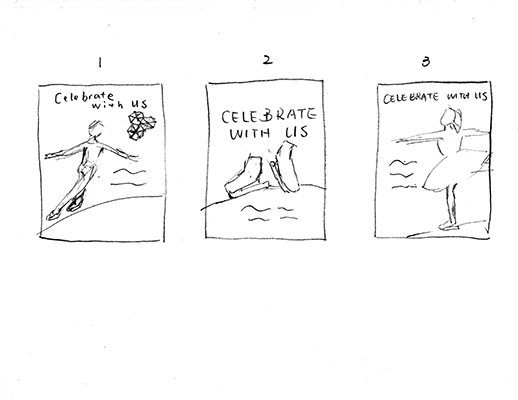 1
Celebrate
with us
2
CELEBRATE
WITH US
3
CELEBRATE WITH US